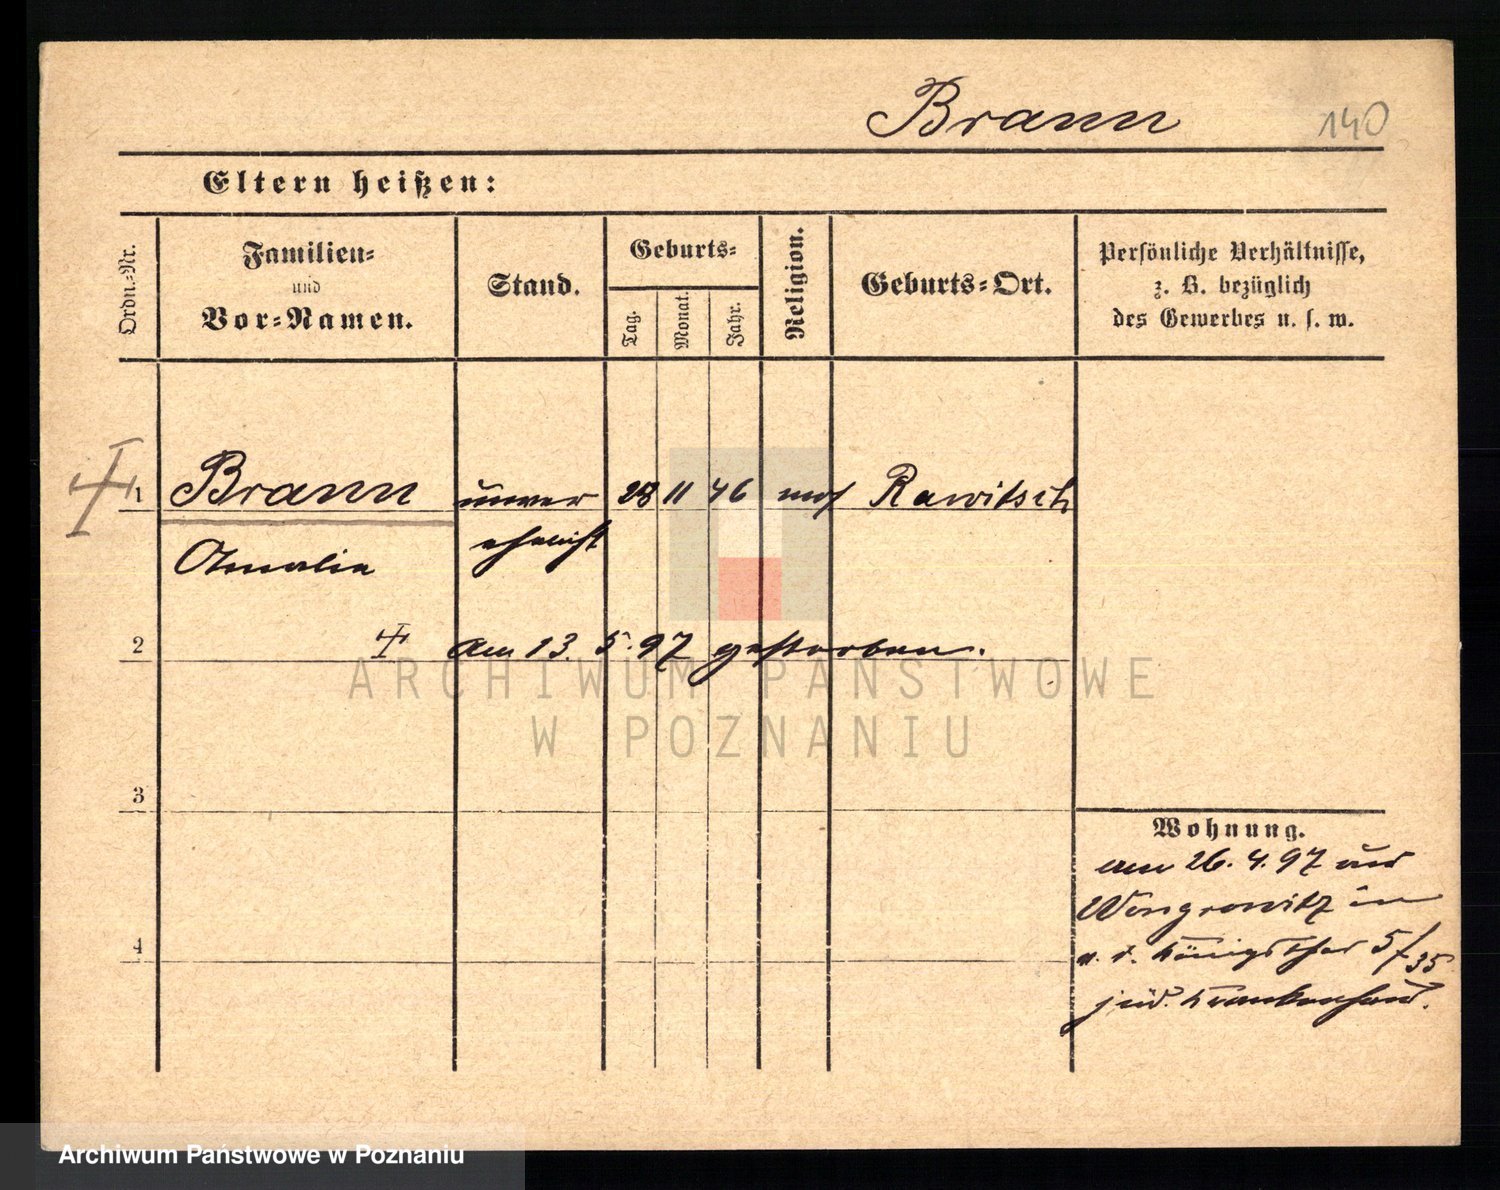 Brann
140
Eltern heißen:
Ordn.-Nr.
Familien-
und
Vor-Namen.
Stand.
Geburts-
Tag.
Monat.
Jahr.
Religion.
Geburts-Ort.
Persönliche Verhältnisse,
z. B. bezüglich
des Gewerbes u. s. w.
1 Brann unver 28 11 46 mos Rawitsch
Amalie ehelicht
2 am 13. 5. 97 gestorben.
3
4
Wohnung.
am 26. 4. 97 aus
Wongrowitz in
a. d. Königsthor 5/35
jüd. Krankenhaus.
ARCHIWUM PAŃSTWOWE
W POZNANIU
Archiwum Państwowe w Poznaniu